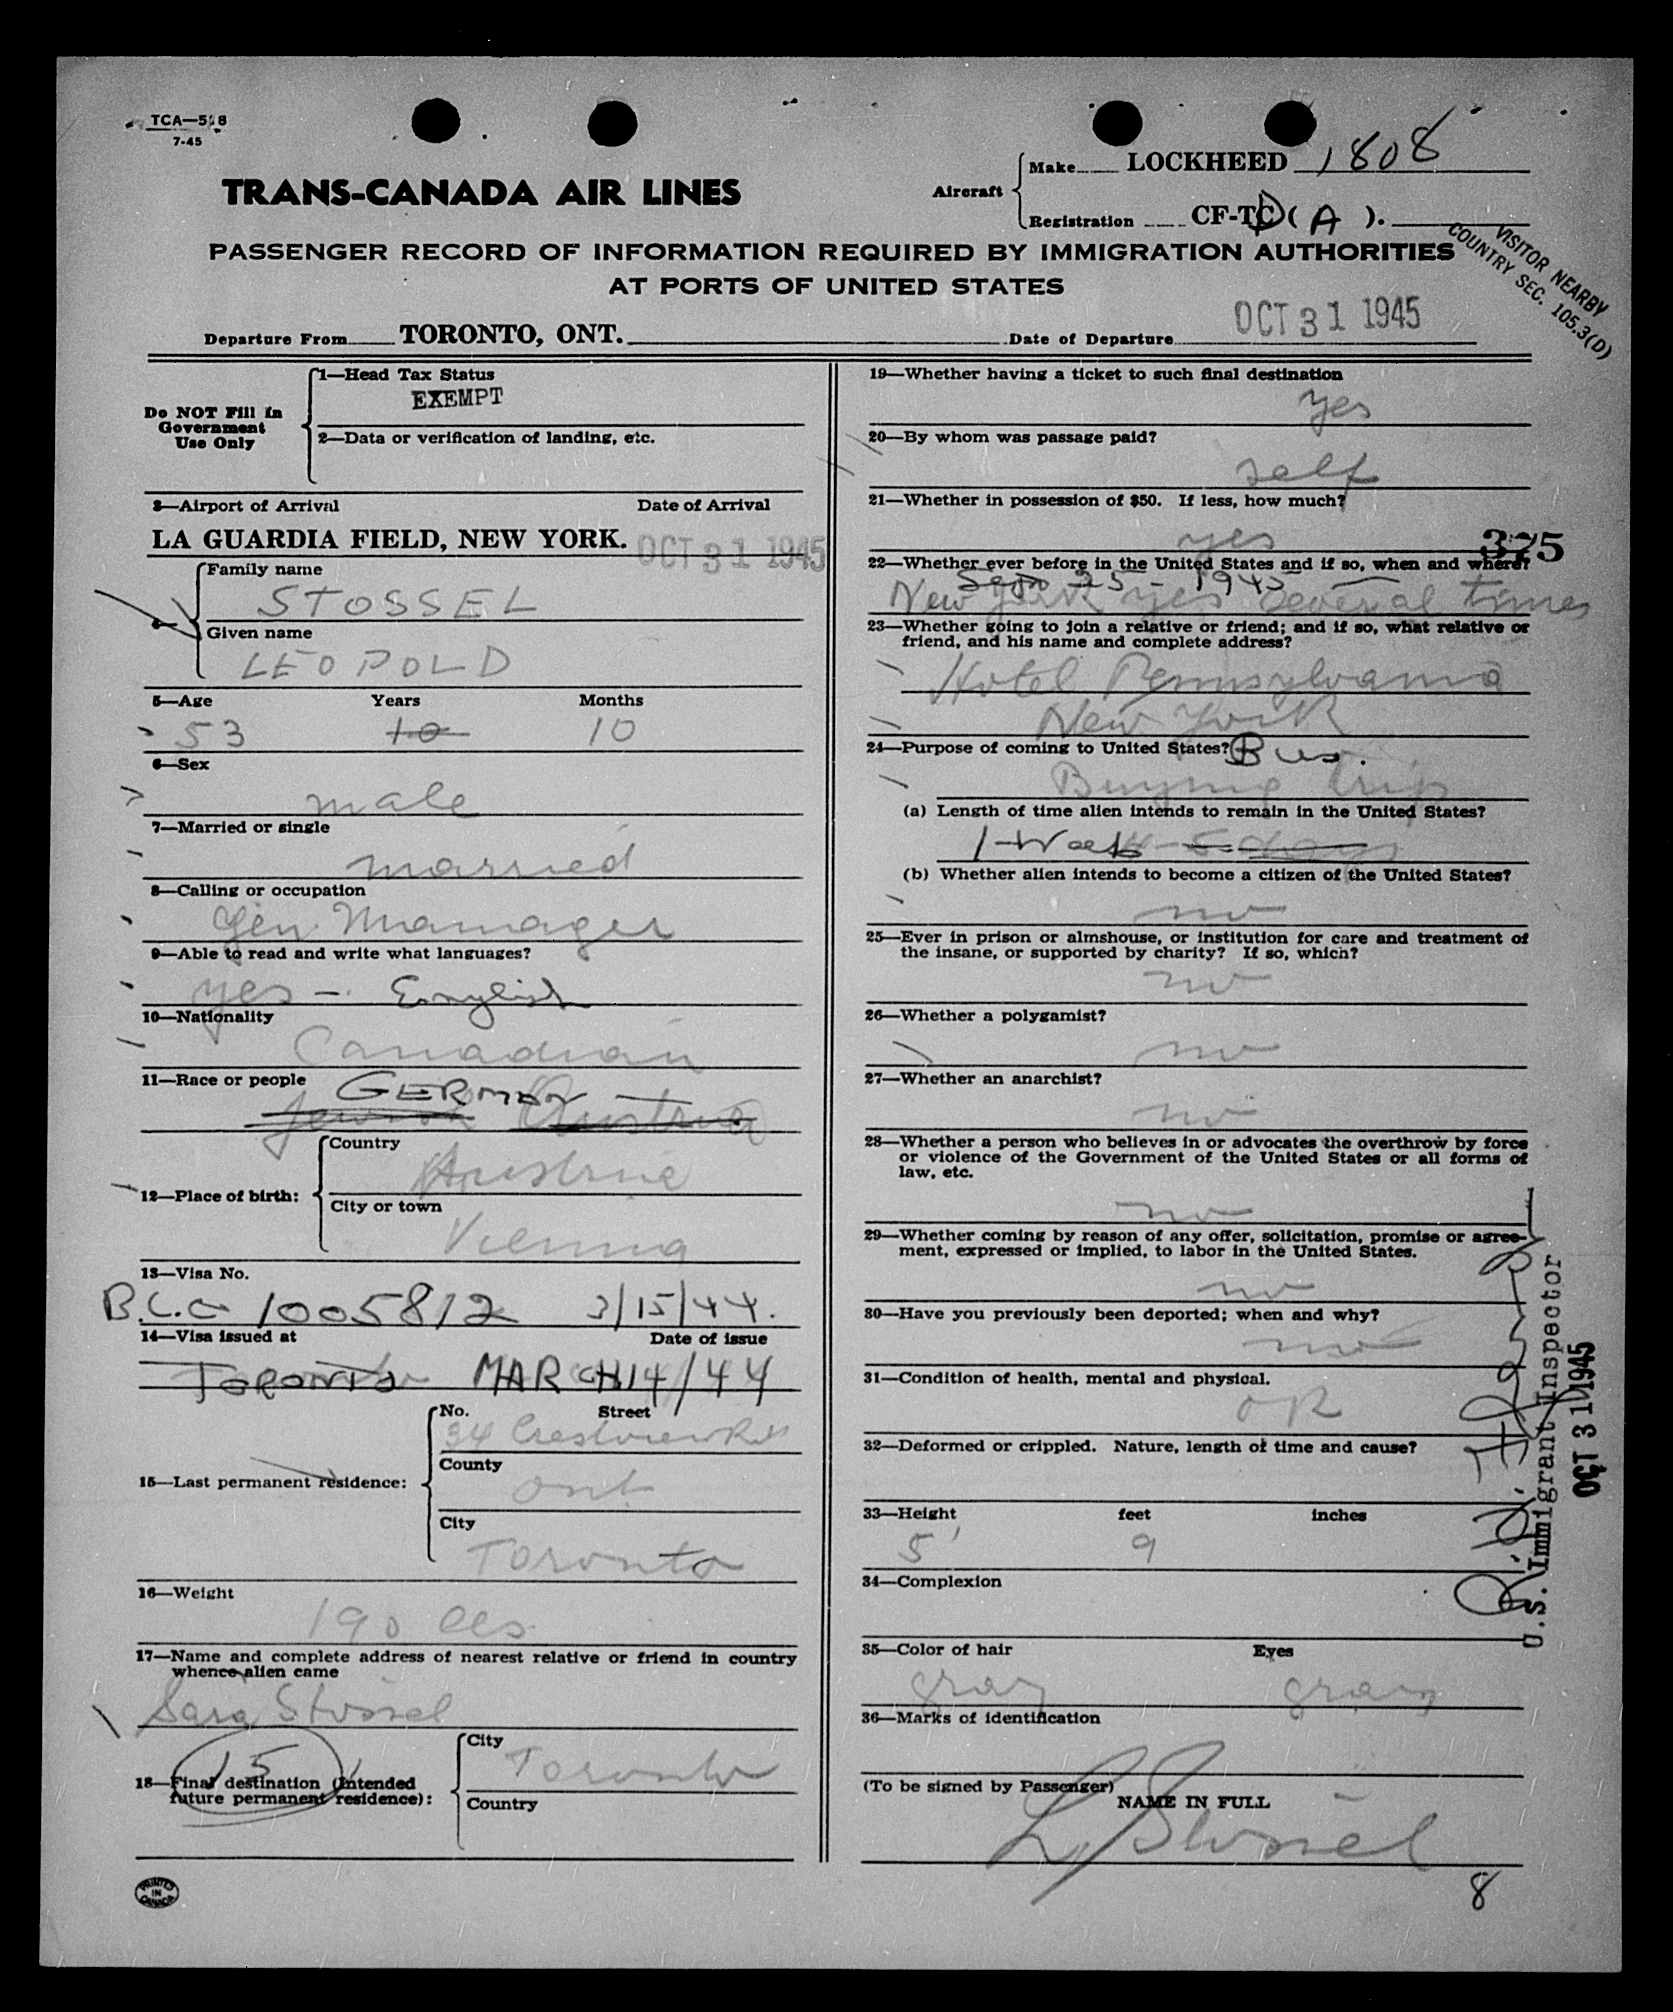 TCA—518
7-45
TRANS-CANADA AIR LINES
Aircraft
Make LOCKHEED 1808
Registration CF-TCD (A).
PASSENGER RECORD OF INFORMATION REQUIRED BY IMMIGRATION AUTHORITIES
AT PORTS OF UNITED STATES
VISITOR NEARBY
COUNTRY SEC. 105.3(D)
Departure From TORONTO, ONT. Date of Departure OCT 31 1945
Do NOT Fill in
Government
Use Only
1—Head Tax Status
EXEMPT
2—Data or verification of landing, etc.
3—Airport of Arrival Date of Arrival
LA GUARDIA FIELD, NEW YORK. OCT 31 1945
4—
Family name
STOSSEL
Given name
LEOPOLD
5—Age Years Months
53 10 10
6—Sex
male
7—Married or single
married
8—Calling or occupation
Gen. Manager
9—Able to read and write what languages?
yes - English
10—Nationality
Canadian
11—Race or people
GERMAN
Jewish Austria
12—Place of birth:
Country
Austria
City or town
Vienna
13—Visa No.
B.C.C 1005812 3/15/44.
14—Visa issued at Date of issue
TORONTO MARCH 14/44
15—Last permanent residence:
No. Street
34 Crestview Rd
County
Ont
City
Toronto
16—Weight
190 lbs
17—Name and complete address of nearest relative or friend in country
whence alien came
Sara Stössel
15
18—Final destination (Intended
future permanent residence):
City
Toronto
Country
PRINTED
IN
CANADA
19—Whether having a ticket to such final destination
yes
20—By whom was passage paid?
self
21—Whether in possession of $50. If less, how much?
yes
375
22—Whether ever before in the United States and if so, when and where?
Sep 25 - 1945
New York yes several times
23—Whether going to join a relative or friend; and if so, what relative or
friend, and his name and complete address?
Hotel Pennsylvania
New York
24—Purpose of coming to United States? Bus.
Buying trip
(a) Length of time alien intends to remain in the United States?
1-Week 5 days
(b) Whether alien intends to become a citizen of the United States?
no
25—Ever in prison or almshouse, or institution for care and treatment of
the insane, or supported by charity? If so, which?
no
26—Whether a polygamist?
no
27—Whether an anarchist?
no
28—Whether a person who believes in or advocates the overthrow by force
or violence of the Government of the United States or all forms of
law, etc.
no
29—Whether coming by reason of any offer, solicitation, promise or agree-
ment, expressed or implied, to labor in the United States.
no
30—Have you previously been deported; when and why?
no
31—Condition of health, mental and physical.
OK
32—Deformed or crippled. Nature, length of time and cause?
33—Height feet inches
5' 9
34—Complexion
35—Color of hair Eyes
gray gray
36—Marks of identification
(To be signed by Passenger)
NAME IN FULL
L. Stössel
8
U.S. Immigrant Inspector
OCT 31 1945